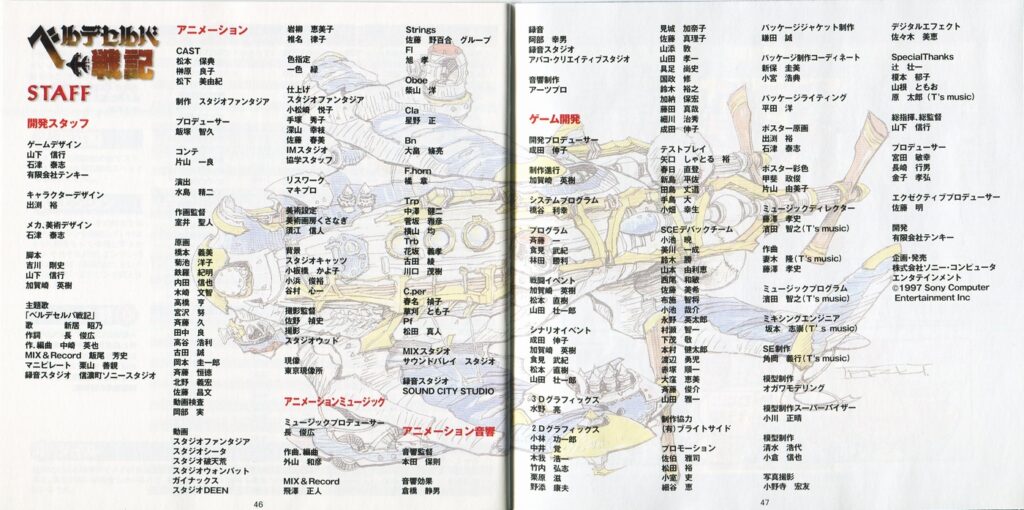 ベルデセルバ戦記
STAFF
開発スタッフ
ゲームデザイン
山下 信行
石津 泰志
有限会社テンキー
キャラクターデザイン
出渕 裕
メカ、美術デザイン
石津 泰志
脚本
吉川 剛史
山下 信行
加賀崎 英樹
主題歌
「ベルデセルバ戦記」
歌 新居 昭乃
作詞 長 俊広
作、編曲 中崎 英也
MIX & Record 飯尾 芳史
マニピレート 栗山 善親
録音スタジオ 信濃町ソニースタジオ
アニメーション
CAST
松本 保典
榊原 良子
松下 美由紀
制作 スタジオファンタジア
プロデューサー
飯塚 智久
コンテ
片山 一良
演出
水島 精二
作画監督
室井 聖人
原画
橋本 義美
菊池 洋子
鉄羅 紀明
内田 信也
木崎 文智
高橋 亨
宮沢 努
斉藤 久
田中 良
高谷 浩利
古田 誠
岡本 圭一郎
斉藤 恒徳
北野 義宏
佐藤 昌文
動画検査
岡部 実
動画
スタジオファンタジア
スタジオシータ
スタジオ破天荒
スタジオウォンバット
ガイナックス
スタジオDEEN
岩柳 恵美子
椎名 律子
色指定
一色 緑
仕上げ
スタジオファンタジア
小松崎 悦子
手塚 秀子
深山 幸枝
佐藤 春美
IMスタジオ
協学スタッフ
リスワーク
マキプロ
美術設定
美術画房くさなぎ
須江 信人
背景
スタジオキャッツ
小板橋 かよ子
小浜 俊裕
谷村 心一
撮影監督
佐野 禎史
撮影
スタジオウッド
現像
東京現像所
アニメーションミュージック
ミュージックプロデューサー
長 俊広
作曲、編曲
外山 和彦
MIX & Record
飛澤 正人
Strings
佐藤 野百合 グループ
Fl
旭 孝
Oboe
柴山 洋
Cla
星野 正
Bn
大畠 條亮
F.horn
橘 章
Trp
中澤 健二
菅坂 雅彦
横山 均
Trb
花坂 義孝
古田 綾
川口 茂樹
C.per
春名 禎子
草刈 とも子
Pf
松田 真人
MIXスタジオ
サウンドバレイ スタジオ
録音スタジオ
SOUND CITY STUDIO
アニメーション音響
音響監督
本田 保則
音響効果
倉橋 静男
46
録音
阿部 幸男
録音スタジオ
アバコ・クリエイティブスタジオ
音響制作
アーツプロ
ゲーム開発
開発プロデューサー
成田 伸子
制作進行
加賀崎 英樹
システムプログラム
橋谷 利幸
プログラム
斉藤 一
食見 武紀
林田 勝利
戦闘イベント
加賀崎 英樹
松本 直樹
山田 壮一郎
シナリオイベント
成田 伸子
加賀崎 英樹
食見 武紀
松本 直樹
山田 壮一郎
3Dグラフィックス
水野 亮
2Dグラフィックス
小林 功一郎
中井 覚
木我 浩一
竹内 弘志
栗原 滋
野添 康夫
見城 加奈子
佐藤 真理子
山添 敦
山田 孝一
具足 尚史
国政 修
鈴木 裕之
加納 保宏
藤田 真哉
細川 治秀
成田 伸子
テストプレイ
矢口 しゃとる 裕
春日 直登
新島 平佐
田島 丈道
手島 大
小畑 幸生
SCEデバックチーム
小池 暁
美川 一成
鈴木 勝
山本 由利恵
西尾 和敏
佐藤 美希
布施 智将
小池 哉介
永野 英太郎
村瀬 智一
下茂 敬
本村 健太郎
渡辺 勇児
赤塚 順一
大窪 恵美
斉藤 俊介
山田 雅一
制作協力
(有)ブライトサイド
プロモーション
佐伯 雅司
松田 裕
小室 史
細谷 恵
パッケージジャケット制作
鎌田 誠
パッケージ制作コーディネート
新保 圭美
小宮 浩典
パッケージライティング
平田 洋
ポスター原画
出渕 裕
石津 泰志
ポスター彩色
甲斐 政俊
片山 由美子
ミュージックディレクター
藤澤 孝史
濱田 智之(T's music)
作曲
妻木 隆(T's music)
藤澤 孝史
ミュージックプログラム
濱田 智之(T's music)
ミキシングエンジニア
坂本 志漸(T's music)
SE制作
角岡 義行(T's music)
模型制作
オガワモデリング
模型制作スーパーバイザー
小川 正晴
模型制作
清水 浩代
小倉 信也
写真撮影
小野寺 宏友
デジタルエフェクト
佐々木 美恵
SpecialThanks
辻 壮一
榎本 郁子
山根 ともお
原 太郎(T's music)
総指揮、総監督
山下 信行
プロデューサー
宮田 敏幸
長崎 行男
金子 孝弘
エクゼクティブプロデューサー
佐藤 明
開発
有限会社テンキー
企画・発売
株式会社ソニー・コンピュータ
エンタテインメント
©1997 Sony Computer
Entertainment Inc
47